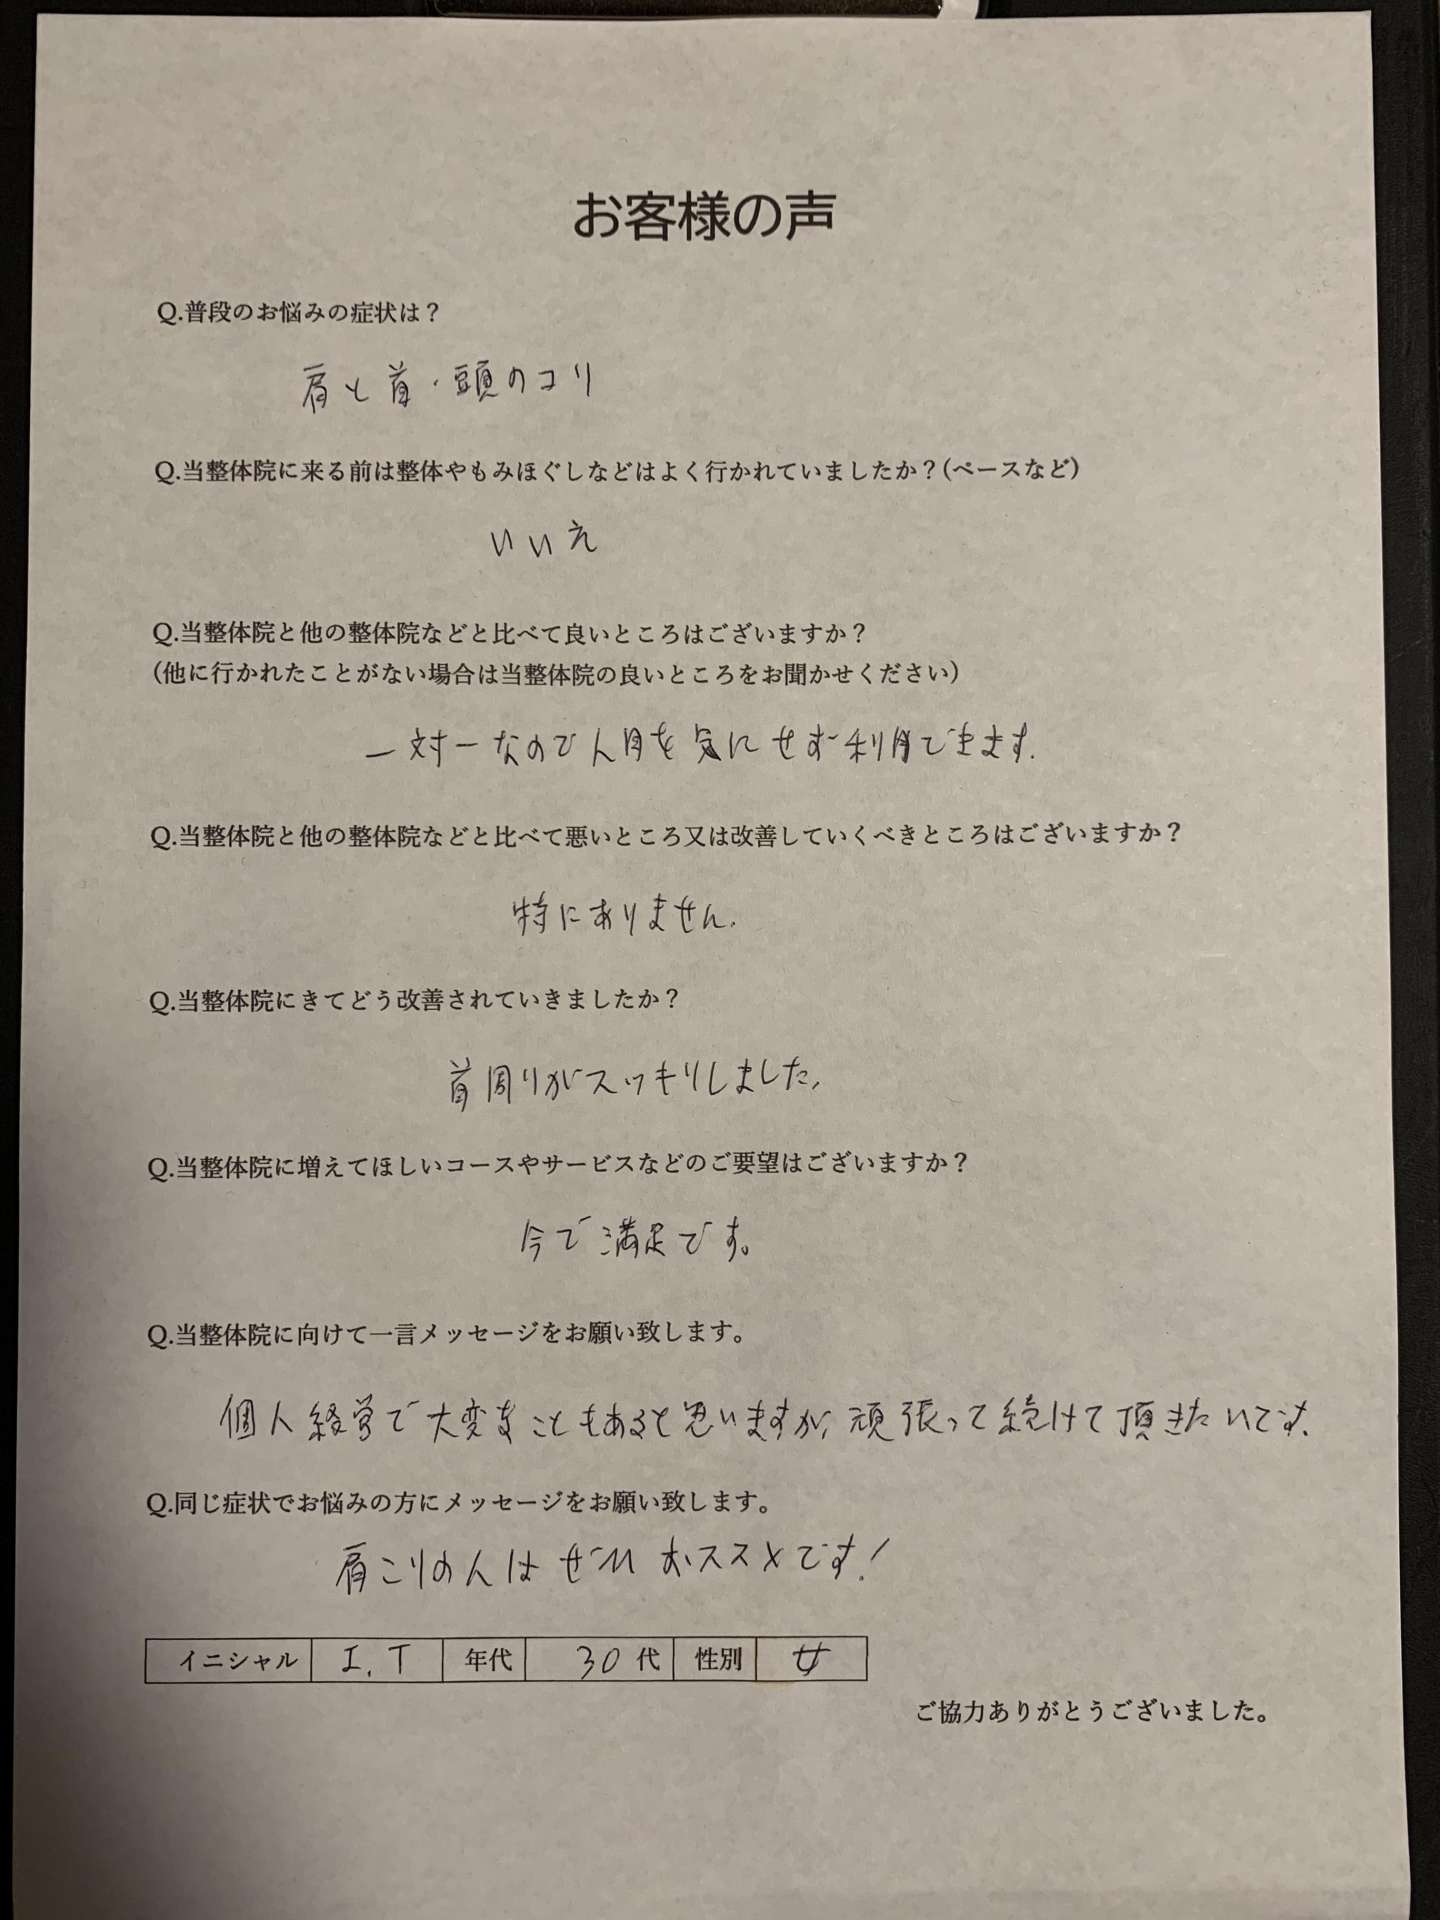 お客様の声
Q.普段のお悩みの症状は？
肩と首・頭のコリ
Q.当整体院に来る前は整体やもみほぐしなどはよく行かれていましたか？(ペースなど)
いいえ
Q.当整体院と他の整体院などと比べて良いところはございますか？
(他に行かれたことがない場合は当整体院の良いところをお聞かせください)
一対一なので人目を気にせず利用できます.
Q.当整体院と他の整体院などと比べて悪いところ又は改善していくべきところはございますか？
特にありません.
Q.当整体院にきてどう改善されていきましたか？
首周りがスッキリしました,
Q.当整体院に増えてほしいコースやサービスなどのご要望はございますか？
今で満足です。
Q.当整体院に向けて一言メッセージをお願い致します。
個人経営で大変なこともあると思いますが, 頑張って続けて頂きたいです.
Q.同じ症状でお悩みの方にメッセージをお願い致します。
肩こりの人はぜひおススメです!
イニシャル I.T 年代 30代 性別 女
ご協力ありがとうございました。